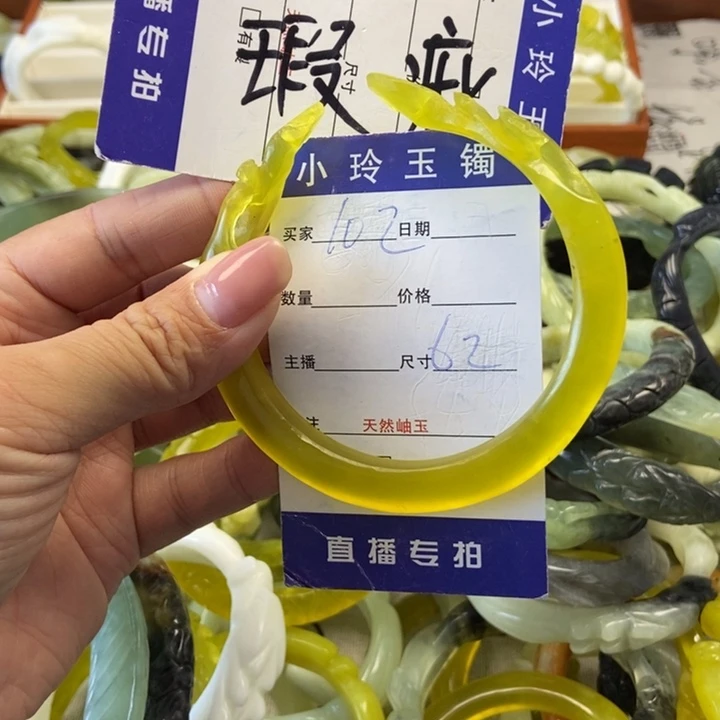 播专拍
瑕疵
尺寸
小玲玉
小玲玉镯
买家 102 日期
数量 价格
主播 尺寸 62
注 天然岫玉
直播专拍